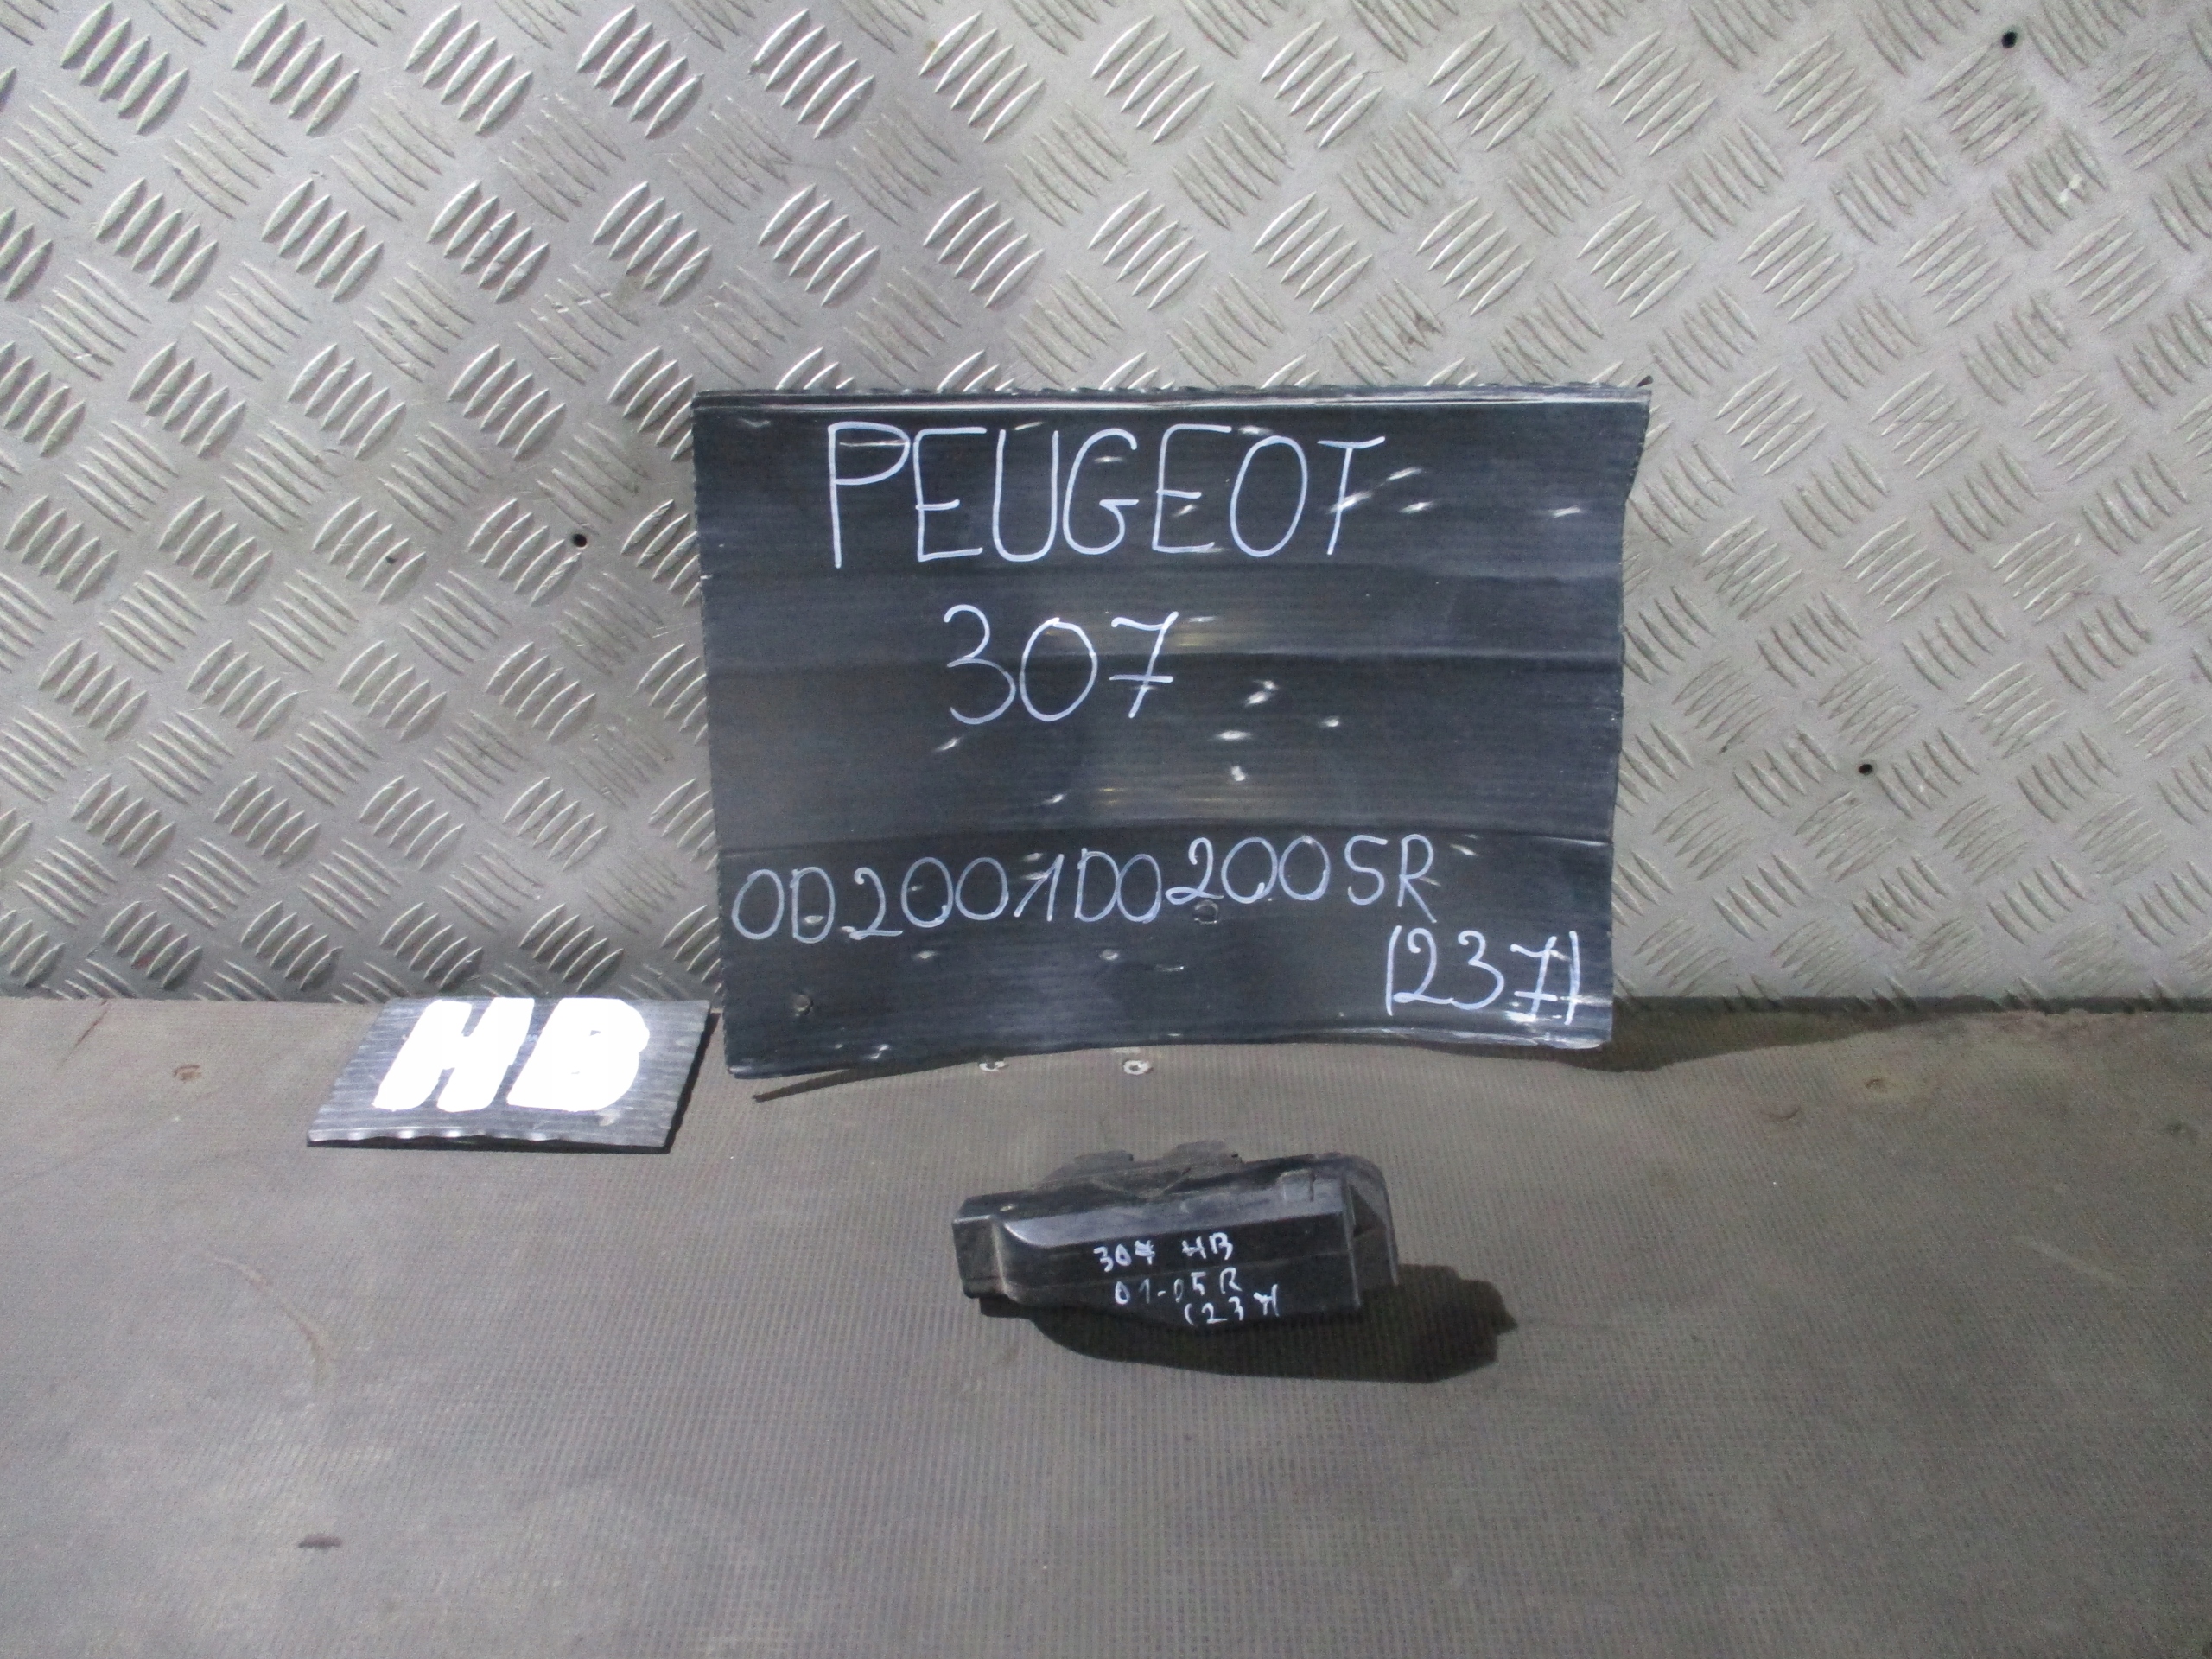 PEUGEOT
307
OD2001DO2005R
(237)
HB
307 HB
01-05R
(237)